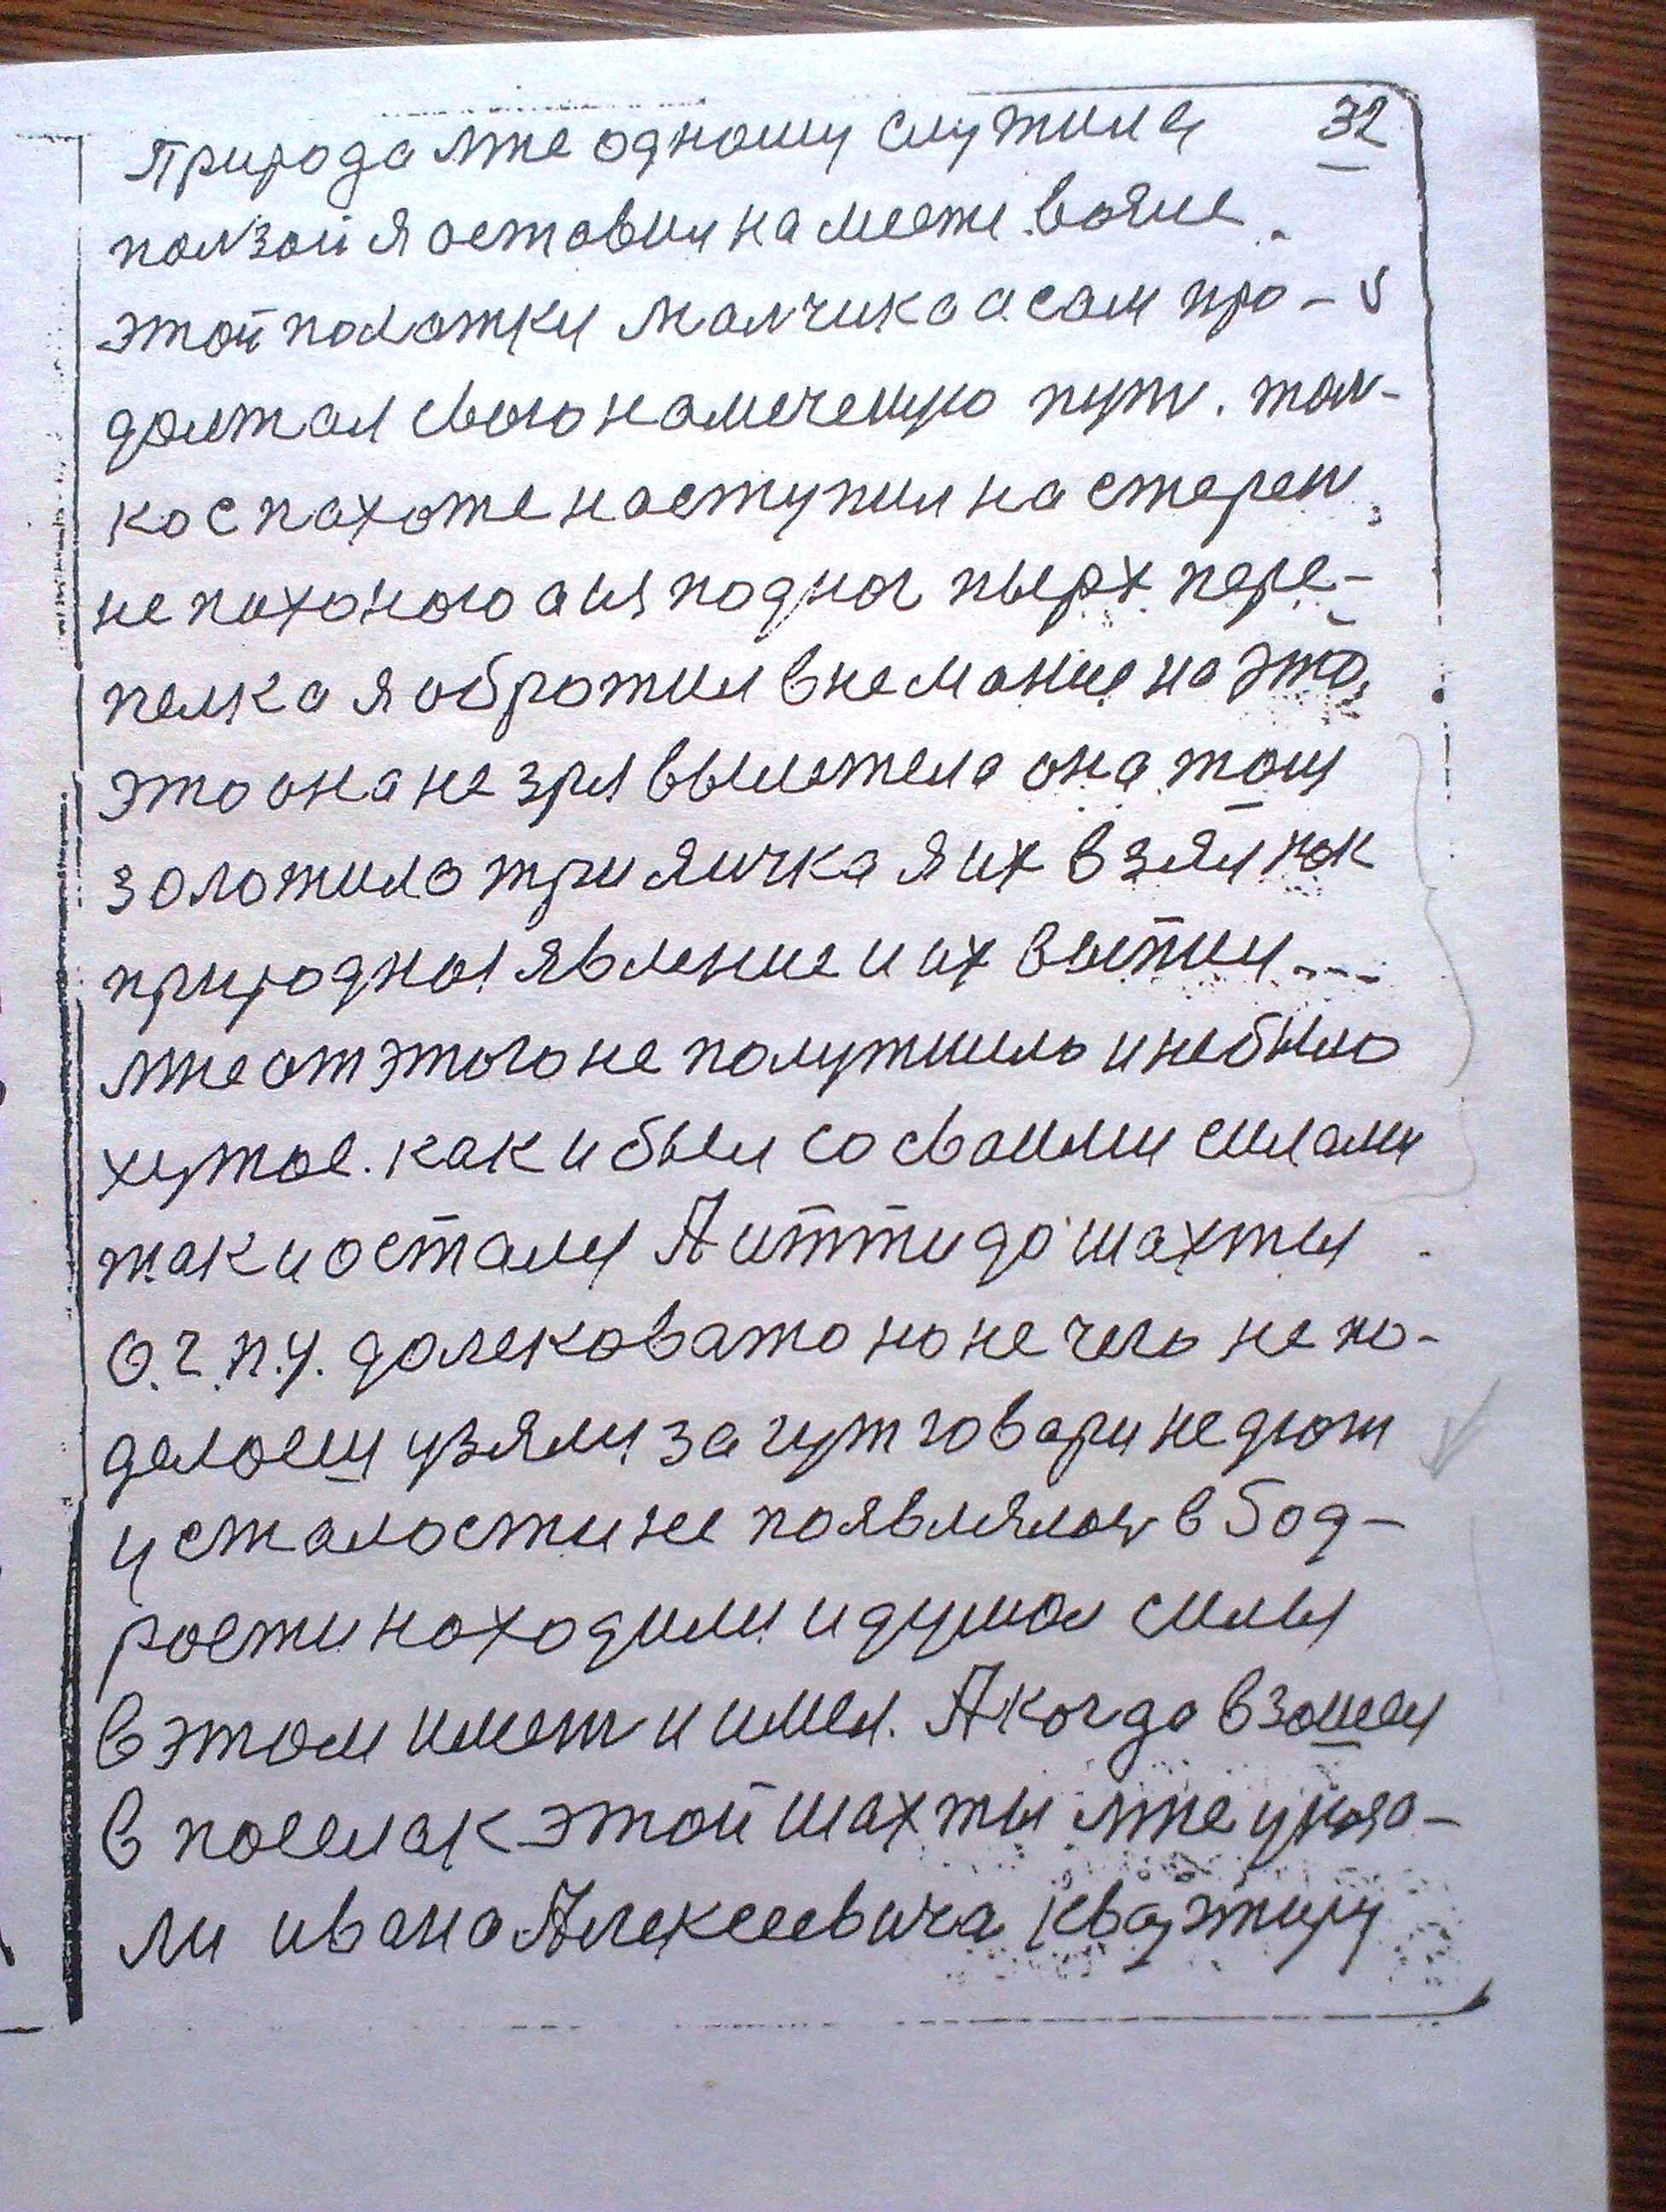 природа мне одному служила 32
ползой я оставил на месте возле
этой полатки малчика а сам про-
должал свою намеченую путь. тол-
ко с пахоте наступил на стерен
не пахоною а из под ног пырх пере-
пелка я обротил внемание на это,
это она не зря вылетела она тощ
заложила три яичка я их взял как
природное явление и их выпил ---
мне от этого не полутшило и не было
хутое. как и был со своими силами
так и остался А итти до шахты
О.Г.П.У. далековато но не чего не по-
делаеш узялся за гут говари не дюж
усталости не появлялось в бод-
рости находился и думал силы
в этом имет и имел. А когда взошел
в поселак этой шахты мне указа-
ли ивана Алексеевича квартиру